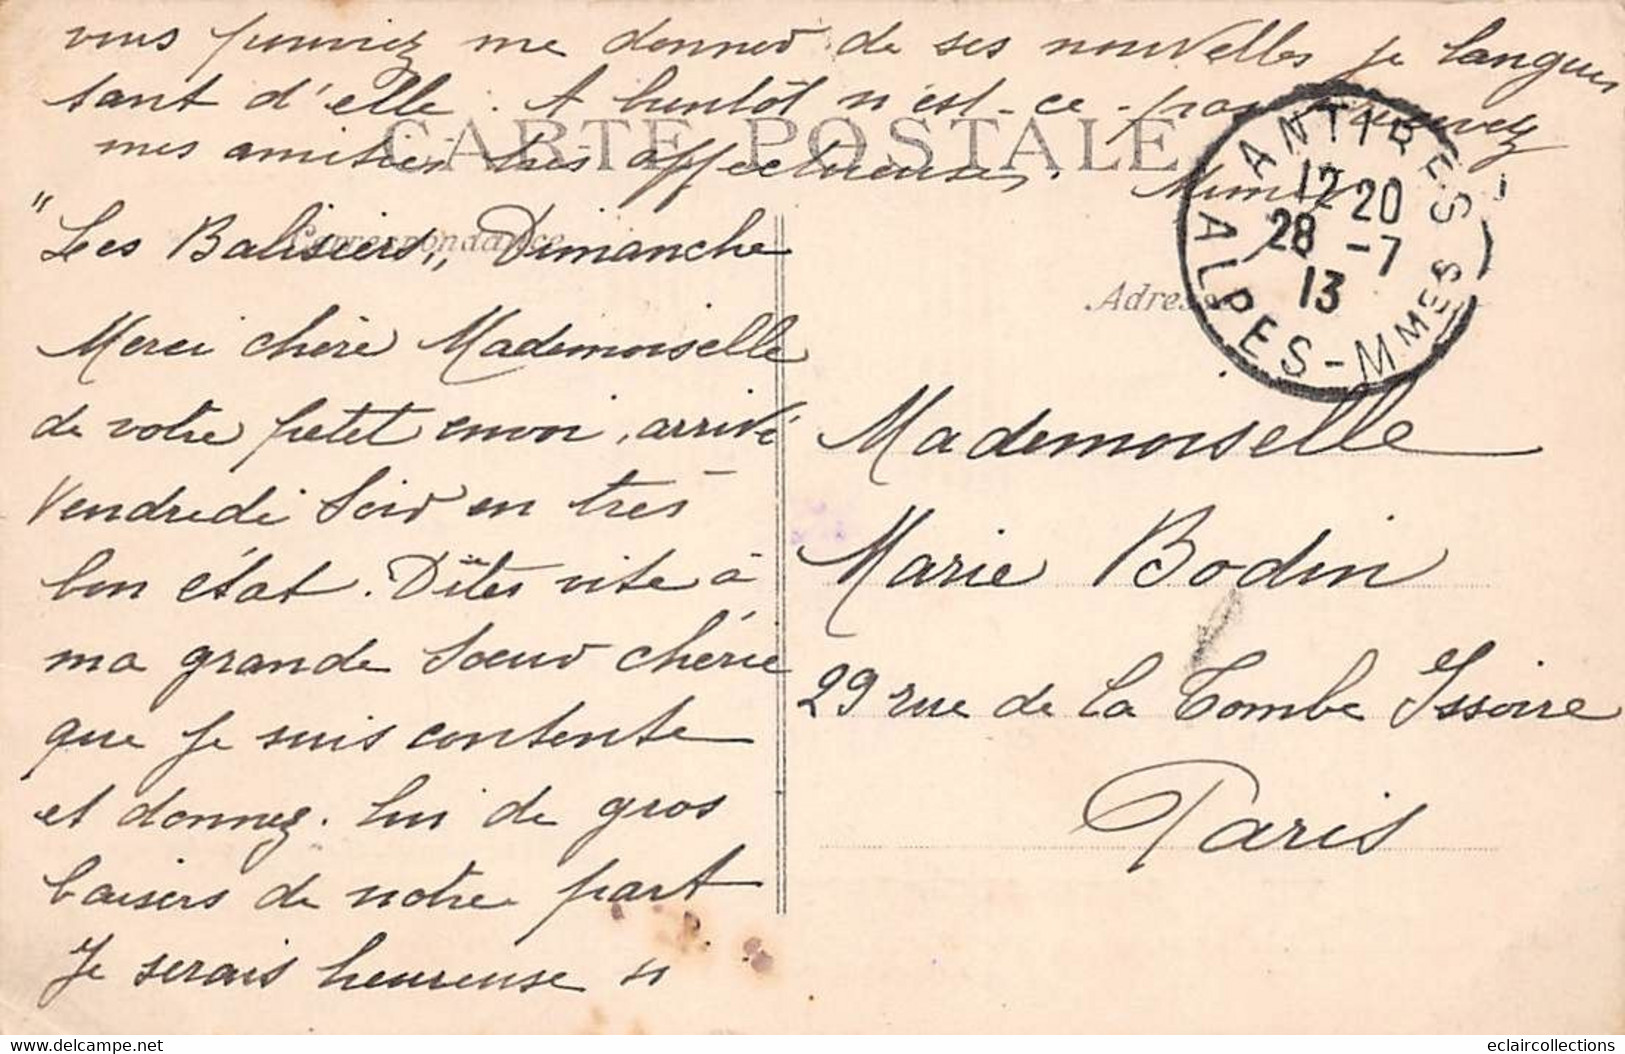 vous pouviez me donner de ses nouvelles je languis
tant d'elle. A bientôt n'est-ce-pas recevez
mes amitiés très affectueuses. Mimi
CARTE POSTALE
Correspondance
"Les Balisiers" Dimanche
Merci chère Mademoiselle
de votre petit envoi, arrivé
Vendredi Soir en très
bon état. Dîtes vite à
ma grande Soeur chérie
que je suis contente
et donnez. lui de gros
baisers de notre part
Je serais heureuse si
ANTIBES
12 20
28 -7
13
ALPES-MMES
Adresse
Mademoiselle
Marie Bodin
29 rue de la Tombe Issoire
Paris
www.delcampe.net
eclaircollections